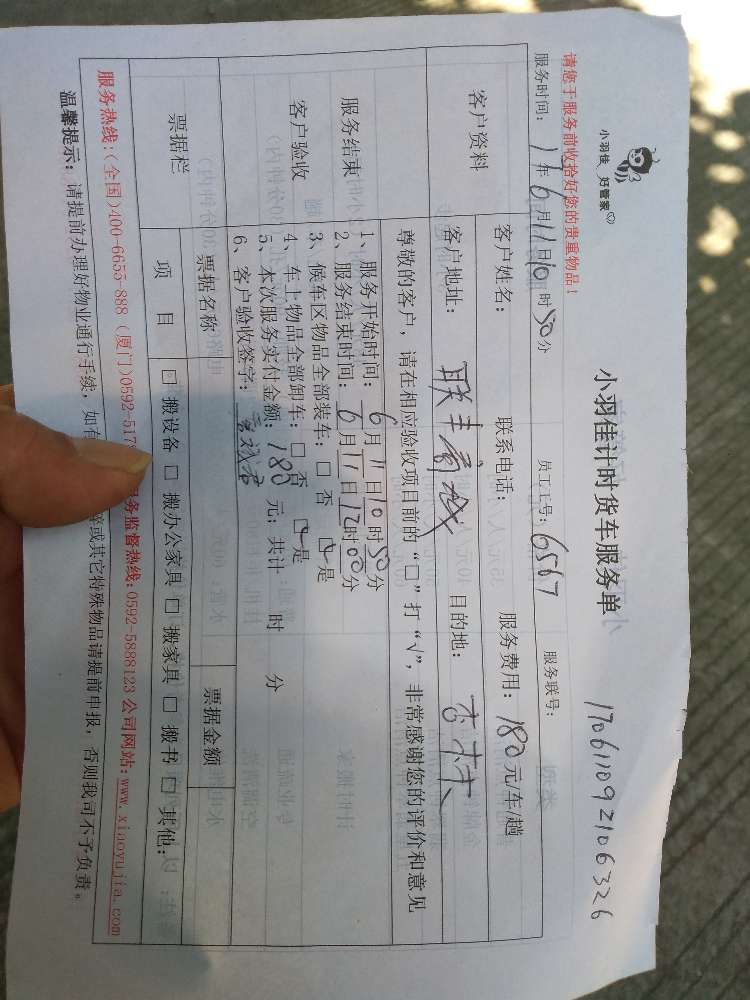 小羽佳 好管家
小羽佳计时货车服务单
170611092106326
请您于服务前收拾好您的贵重物品！
服务时间：17年6月11日10时50分 员工工号：6507 服务联号：
客户资料
客户姓名： 联系电话： 服务费用：180元/车/趟
客户地址：联丰商城 目的地：杏林
尊敬的客户，请在相应验收项目前的“□”打“√”，非常感谢您的评价和意见
服务结束
客户验收
1、服务开始时间：6月11日10时50分
2、服务结束时间：6月11日12时00分
3、候车区物品全部装车：□ 否 ☑是
4、车上物品全部卸车：□ 否 ☑是
5、本次服务实付金额：180元；共计 时 分
6、客户验收签字：
票据栏
票据名称 票据金额
项 目
□ 搬设备 □ 搬办公家具 □ 搬家具 □ 搬书 □ 其他：
服务热线：(全国)400-6655-888 (厦门)0592-517 务监督热线：0592-5888123 公司网站：www.xiaoyujia.com
温馨提示：请提前办理好物业通行手续，如有 或其它特殊物品请提前申报，否则我司不予负责。